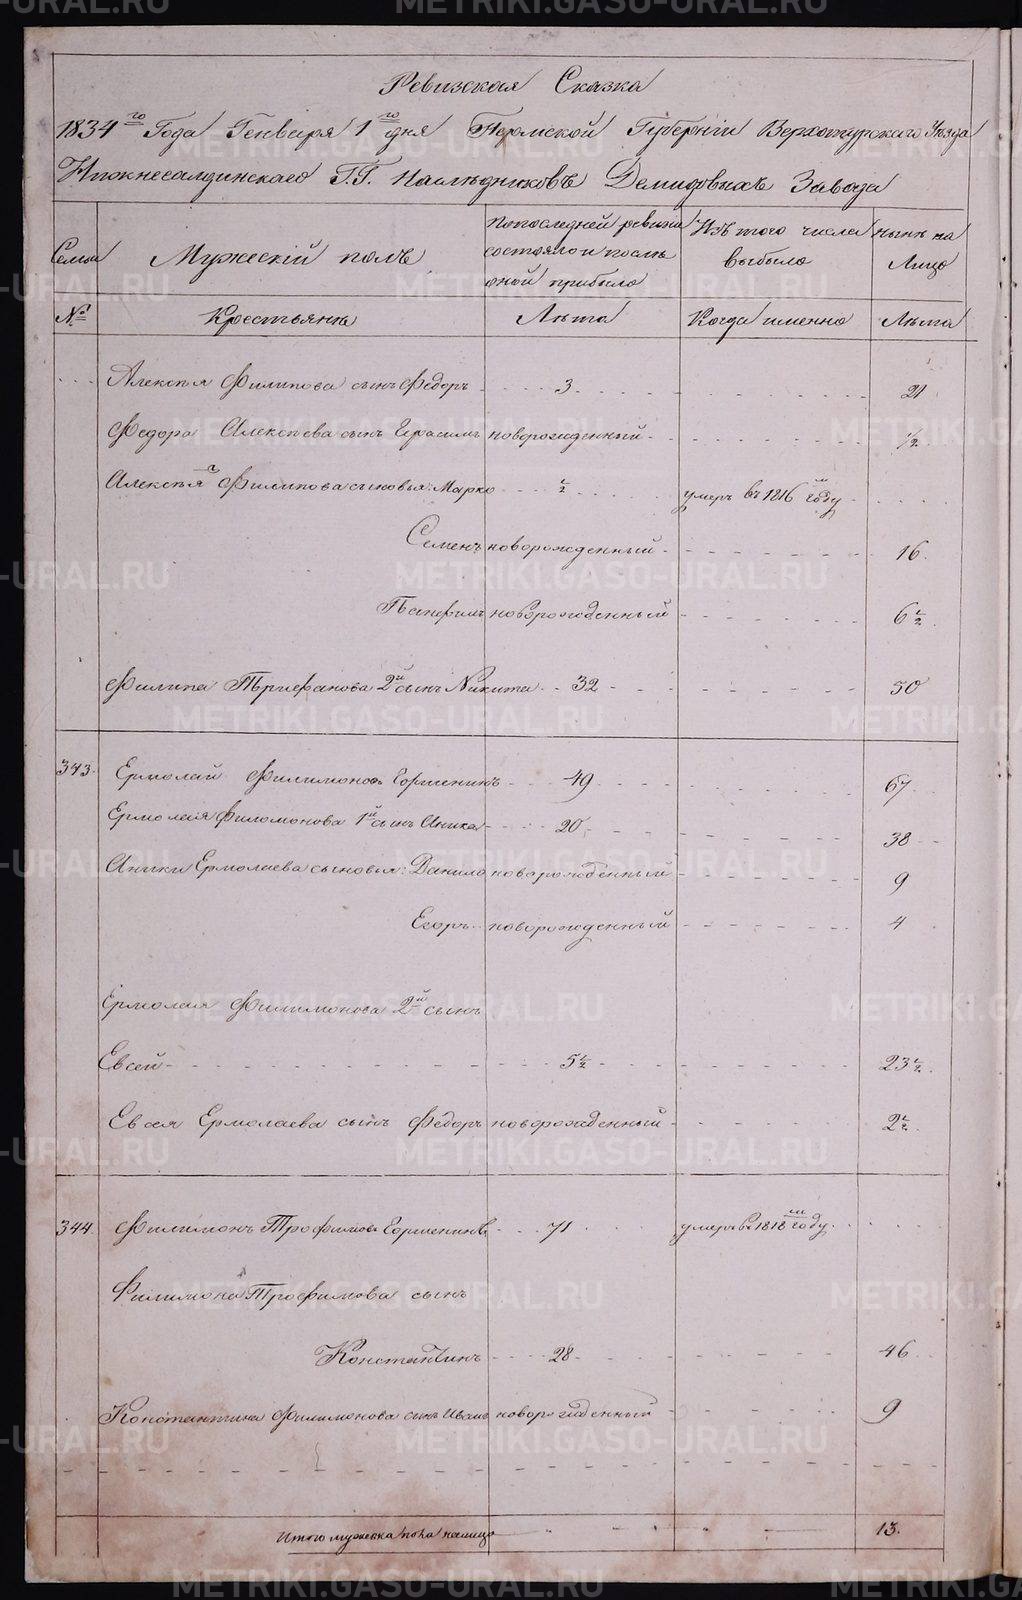 Ревизская Сказка
1834го Года Генваря 1го дня Пермской Губернiи Верхотурскаго Уѣзда
Нижнесалдинскаго Г.Г. Наслѣдниковъ Демидовыхъ Завода
Семьи Мужескiй полъ Попоследней ревизiи состояло и послѣ оной прибыло Изъ того числа выбыло нынѣ на Лицо
№ Крестьянѣ Лѣта Когда именно Лѣта
Алексѣя Филипова сынъ Федоръ 3 21
Федора Алексѣева сынъ Герасимъ новорожденный 1/2
Алексѣя Филипова сыновья: Марко 1/2 умеръ въ 1816м году
Семенъ новорожденный 16
новорожденный 6 1/2
Филипа 2й сынъ Никита 32 50
343. Ермолай Филимоновъ Горшенинъ 49 67
Ермолая Филомонова 1й сынъ Аника 20 38
Аники Ермолаева сыновья: Данило новорожденный 9
Егоръ новорожденный 4
Ермолая Филимонова 2й сынъ
Евсей 5 1/2 23 1/2
Евсея Ермолаева сынъ Федоръ новорожденный 2 1/2
344. Филимонъ Трофимовъ Горшенинъ 71 умеръ въ 1818м году
Филимона Трофимова сынъ
Константинъ 28 46
Константина Филимонова сынъ Иванъ новорожденный 9
Итого мужеска пола налицо 13.
METRIKI.GASO-URAL.RU